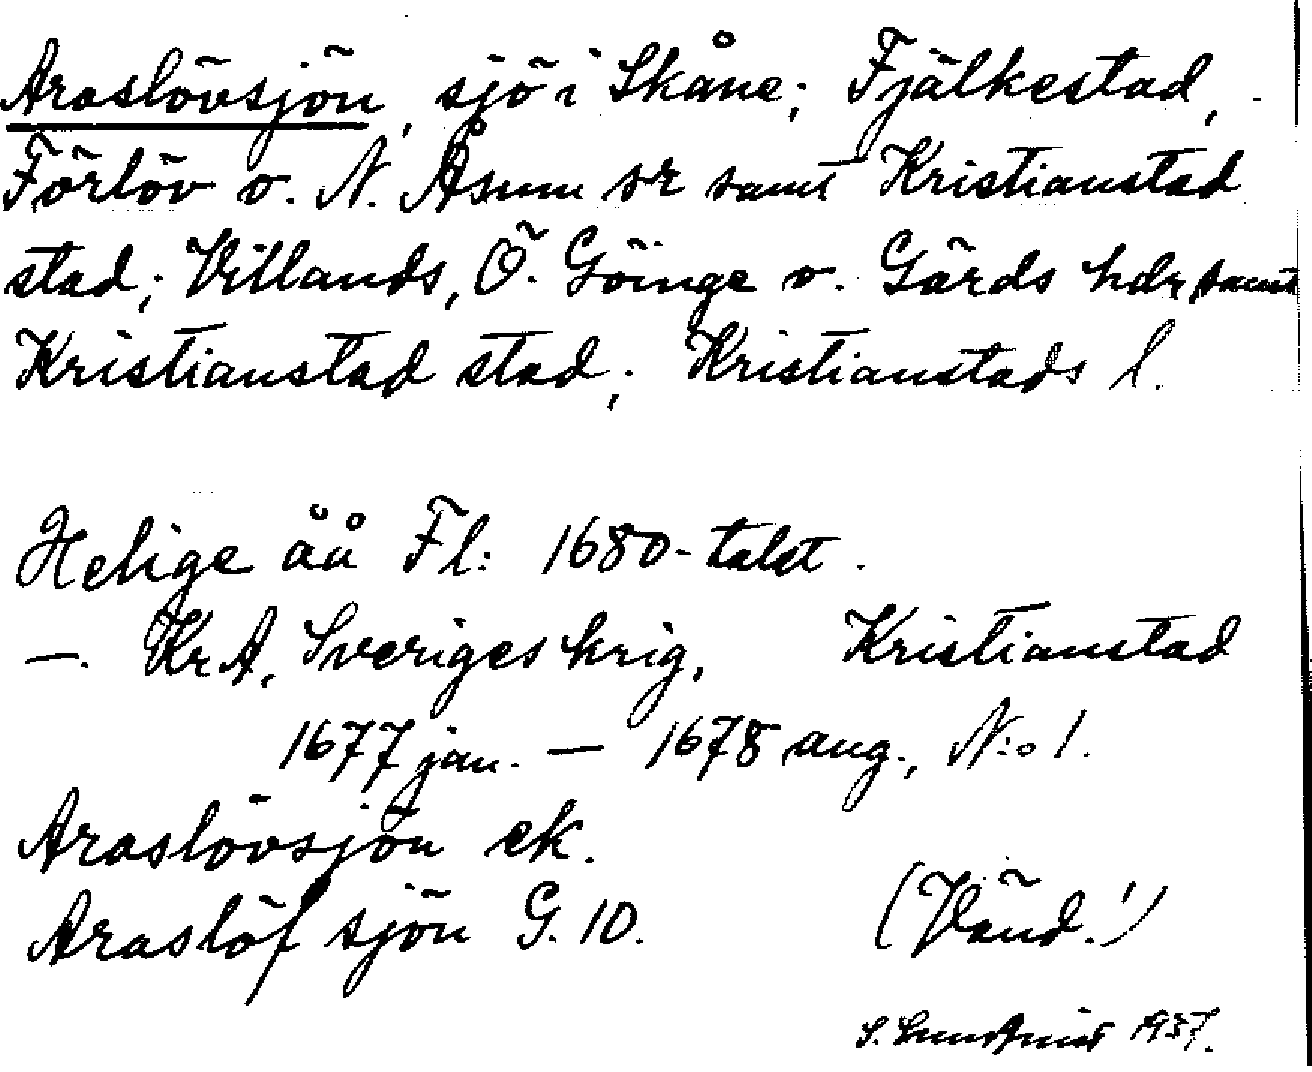 Araslövsjön, sjö i Skåne; Fjälkestad,
Färlöv o. N. Åsum sr samt Kristianstad
stad; Villands, Ö. Göinge o. Gärds hdr samt
Kristianstad stad; Kristianstads l.
Helige åå Fl: 1680-talet.
—. KrA, Sveriges krig, Kristianstad
1677 jan. — 1678 aug., N:o 1.
Araslövsjön ek.
Araslöf sjön G. 10.
(Vänd!)
S. 1937.